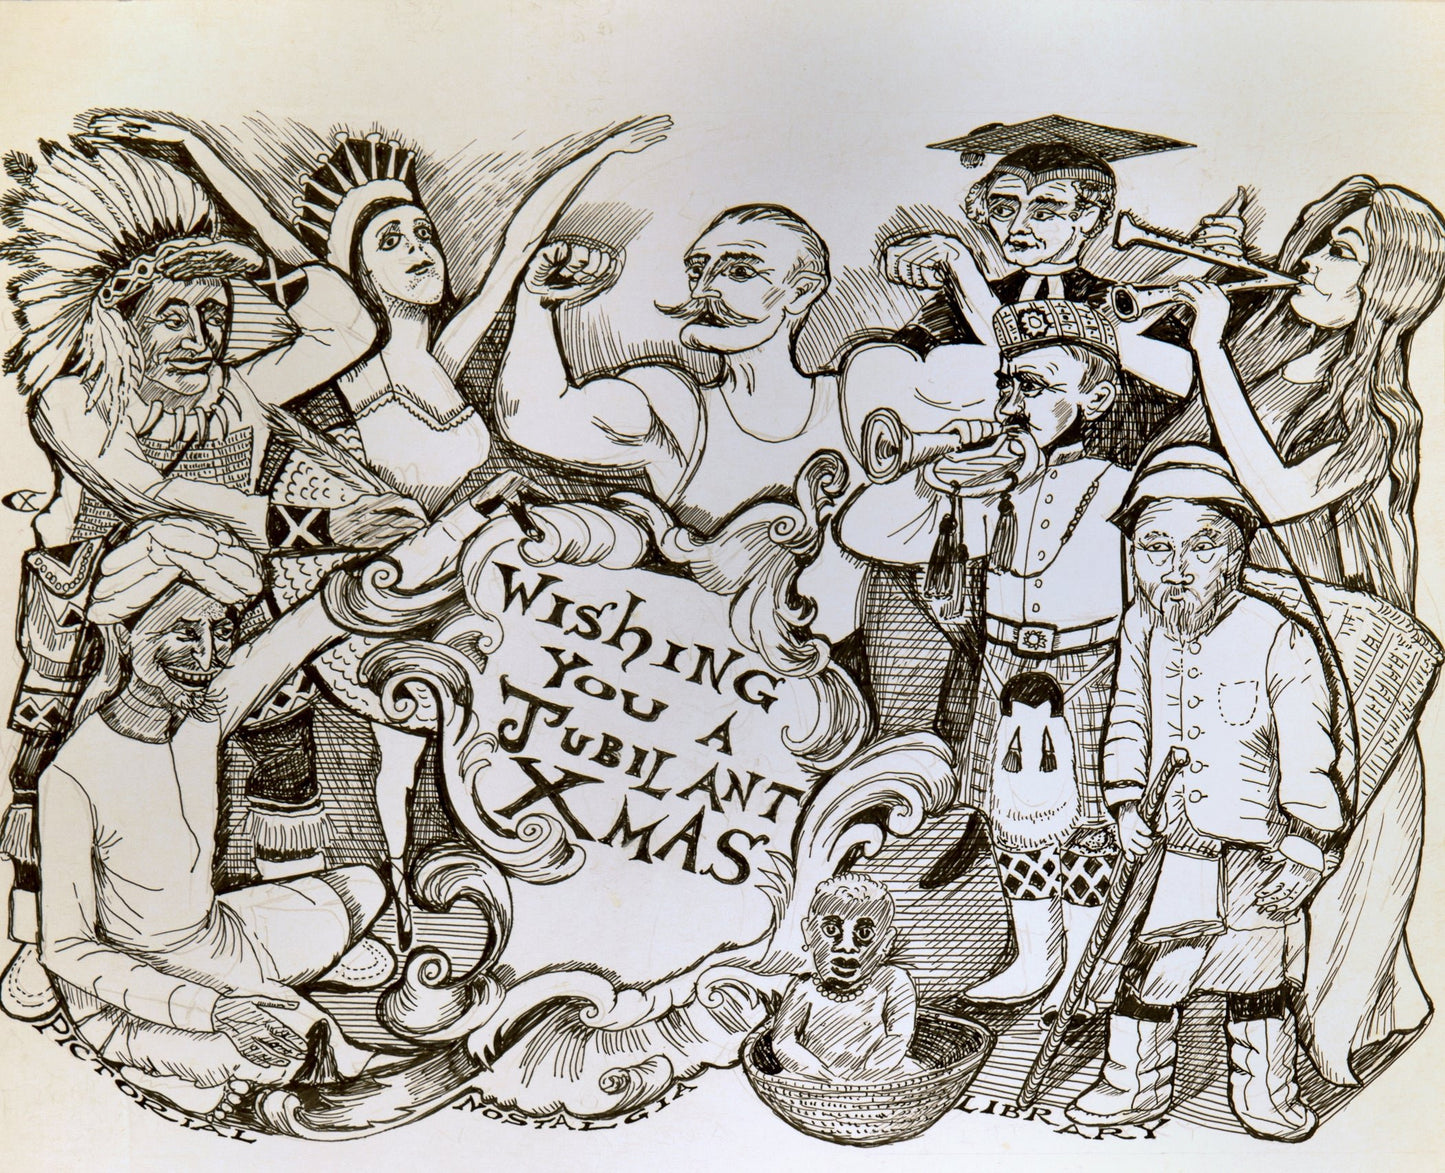 WIShING
YOU A
JUBILANT
XMAS
PICTORIAL NOSTALGIA LIBRARY